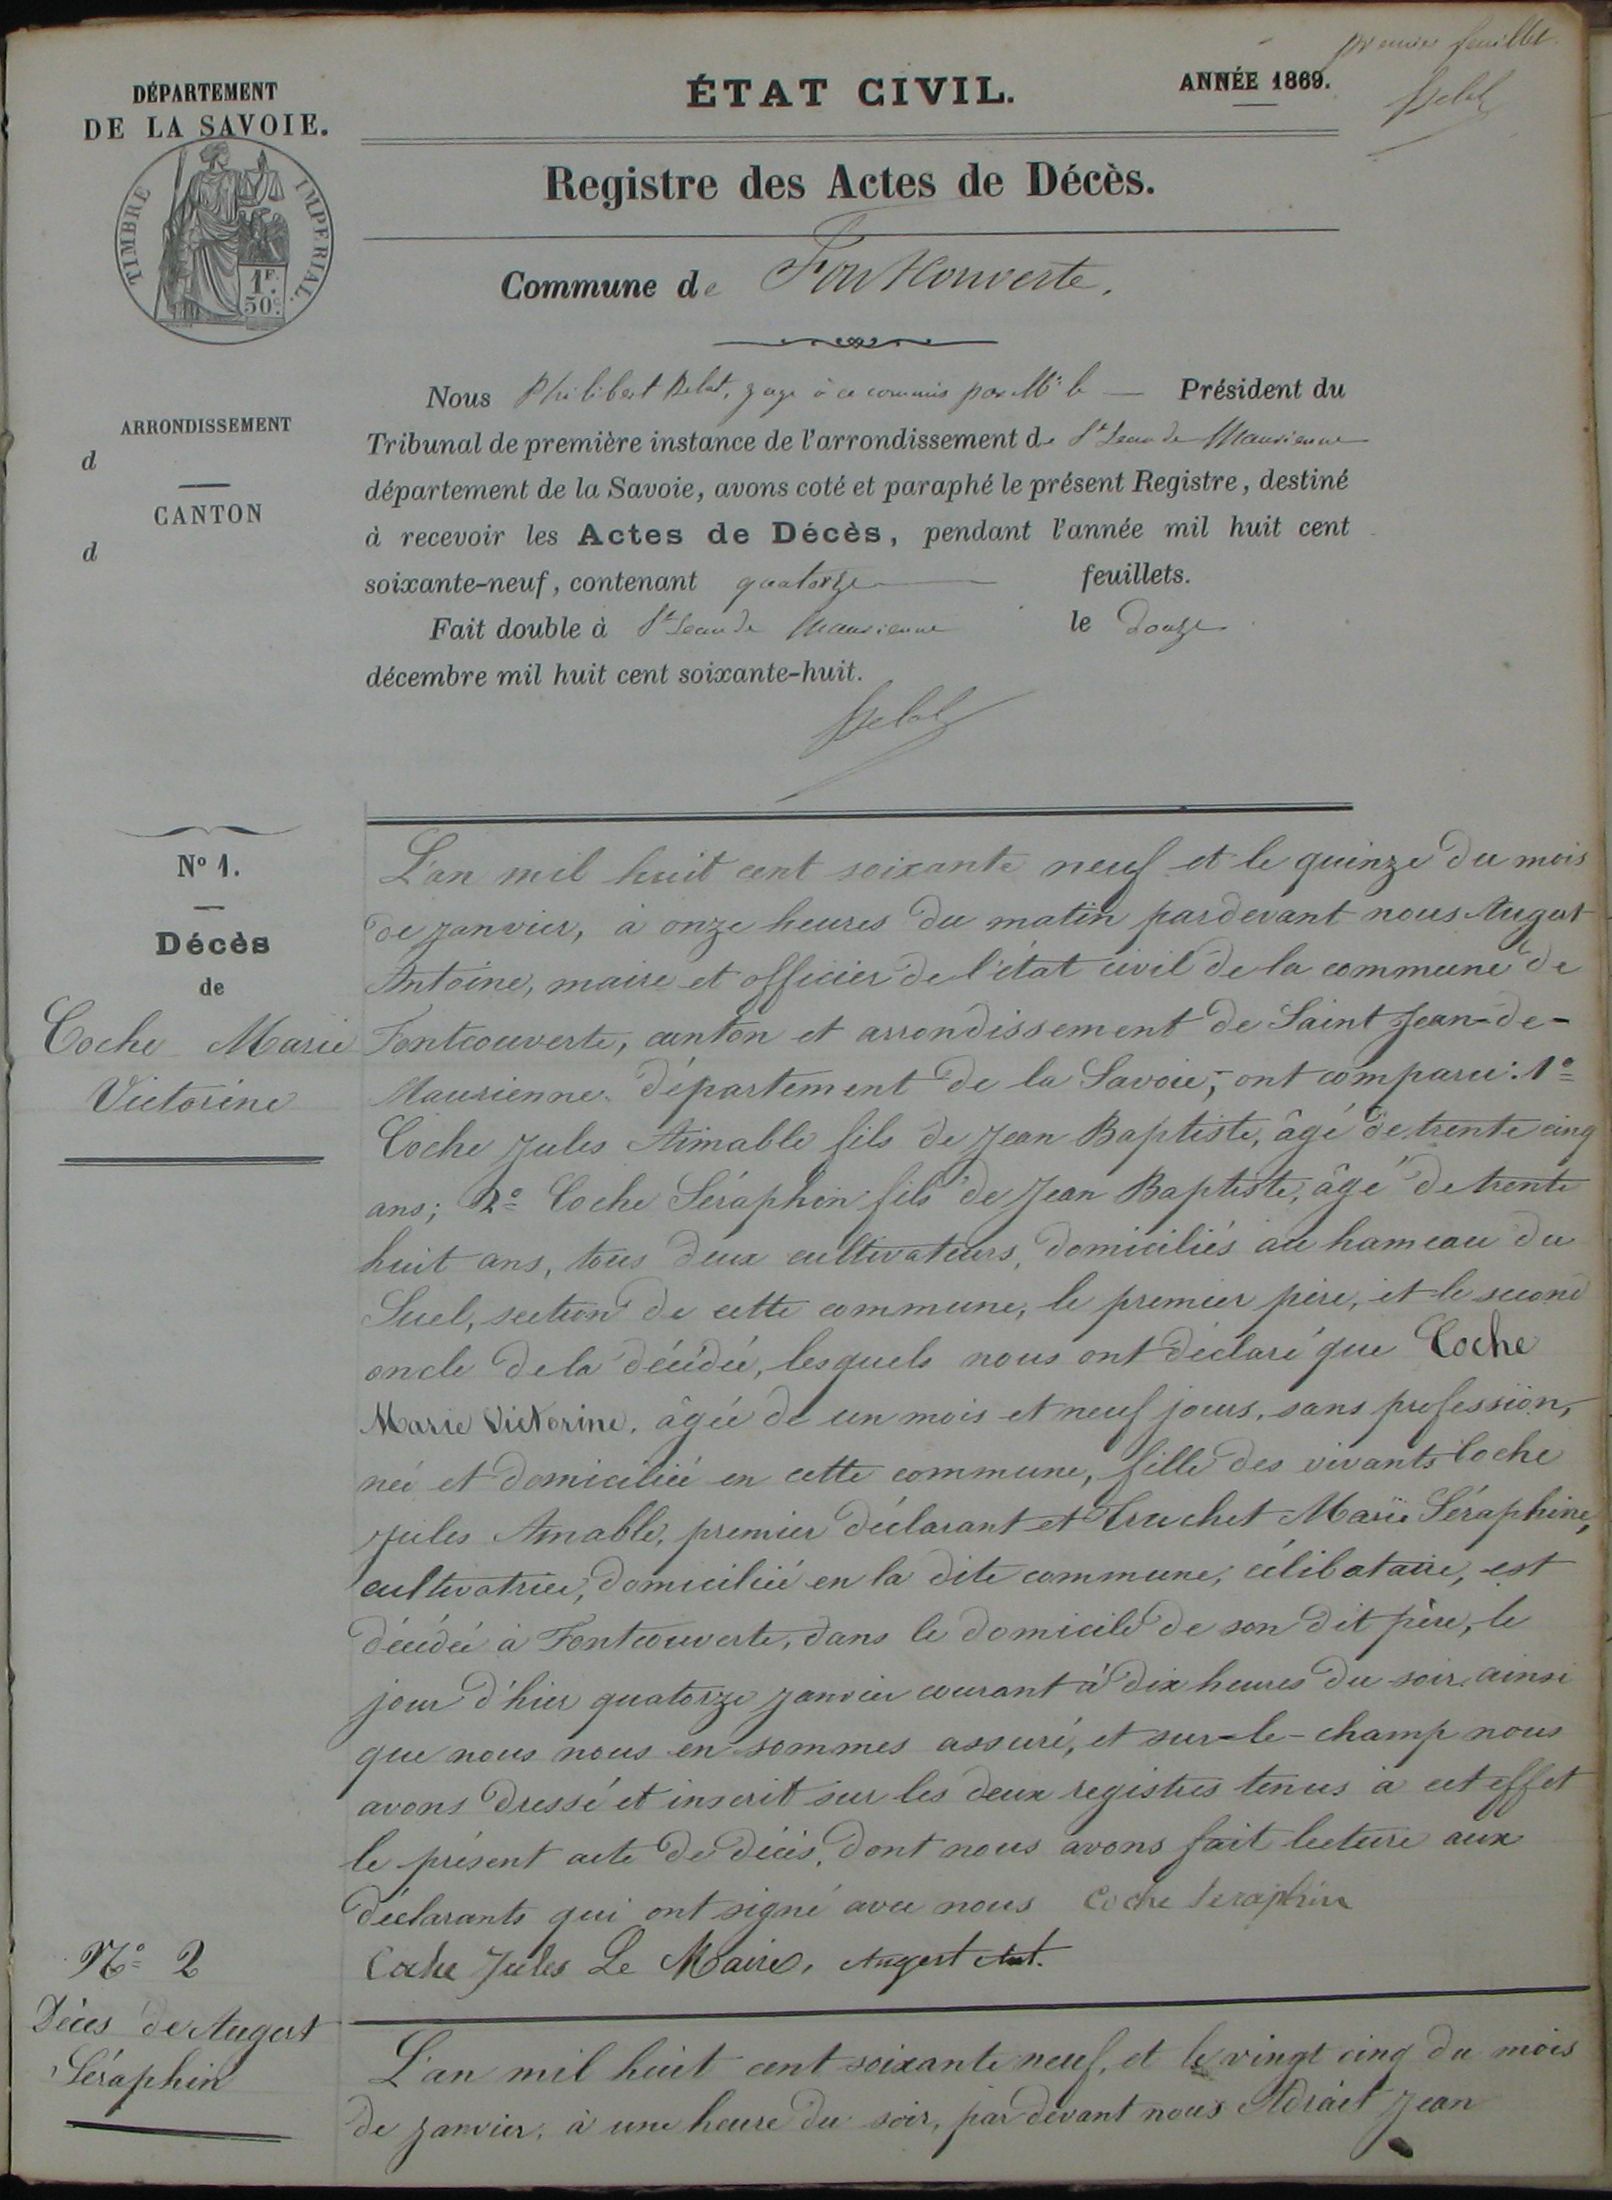 premier feuillet.
DÉPARTEMENT
DE LA SAVOIE.
ÉTAT CIVIL.
ANNÉE 1869.
TIMBRE IMPERIAL.
1F.
50c.
Registre des Actes de Décès.
Commune de Fontcouverte.
ARRONDISSEMENT
d
CANTON
d
Nous Philibert Delat, juge à ce commis par Mr. le Président du
Tribunal de première instance de l'arrondissement de St Jean de Maurienne
département de la Savoie, avons coté et paraphé le présent Registre, destiné
à recevoir les Actes de Décès, pendant l'année mil huit cent
soixante-neuf, contenant quatorze feuillets.
Fait double à St Jean de Maurienne le douze
décembre mil huit cent soixante-huit.
No 1.
Décès
de
Coche Marie
Victorine
L'an mil huit cent soixante neuf et le quinze du mois
de janvier, à onze heures du matin pardevant nous Augert
Antoine, maire et officier de l'état civil de la commune de
Fontcouverte, canton et arrondissement de Saint Jean-de-
Maurienne département de la Savoie, ont comparu: 1o
Coche Jules Aimable fils de Jean Baptiste, âgé de trente cinq
ans; 2o Coche Séraphin fils de Jean Baptiste, âgé de trente
huit ans, tous deux cultivateurs, domiciliés au hameau du
Suel, section de cette commune, le premier père, et le second
oncle de la décédée, lesquels nous ont déclaré que Coche
Marie Victorine, âgée de un mois et neuf jours, sans profession,
née et domiciliée en cette commune, fille des vivants Coche
Jules Amable, premier déclarant et Truchet Marie Séraphine,
cultivatrice, domiciliée en la dite commune, célibataire, est
décédée à Fontcouverte, dans le domicile de son dit père, le
jour d'hier quatorze janvier courant à dix heures du soir, ainsi
que nous nous en sommes assuré, et sur-le-champ nous
avons dressé et inscrit sur les deux registres tenus à cet effet
le présent acte de décès, dont nous avons fait lecture aux
déclarants qui ont signé avec nous Coche Seraphin
Coche Jules Le Maire, Augert Ant.
No 2
Décès de Augert
Séraphin
L'an mil huit cent soixante neuf, et le vingt cinq du mois
de janvier, à une heure du soir, par devant nous Adrait Jean